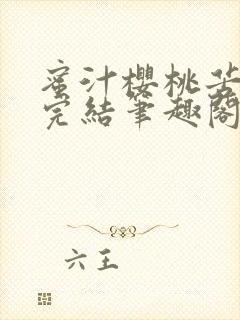 蜜汁櫻桃茘
完結筆趣閣
六王